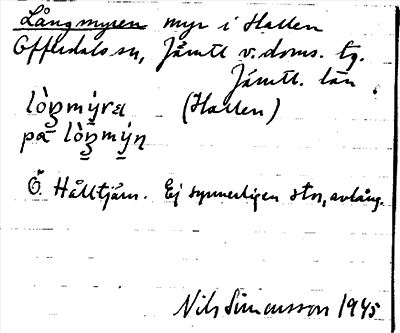 Långmyren myr i Hallen
Offerdals sn, Jämtl v. doms. tg.
Jämtl. län
lòŋmýra (Hallen)
pa lòŋmýn
Ö. Hålltjärn. Ej synnerligen stor, avlång.
Nils Simonsson 1945